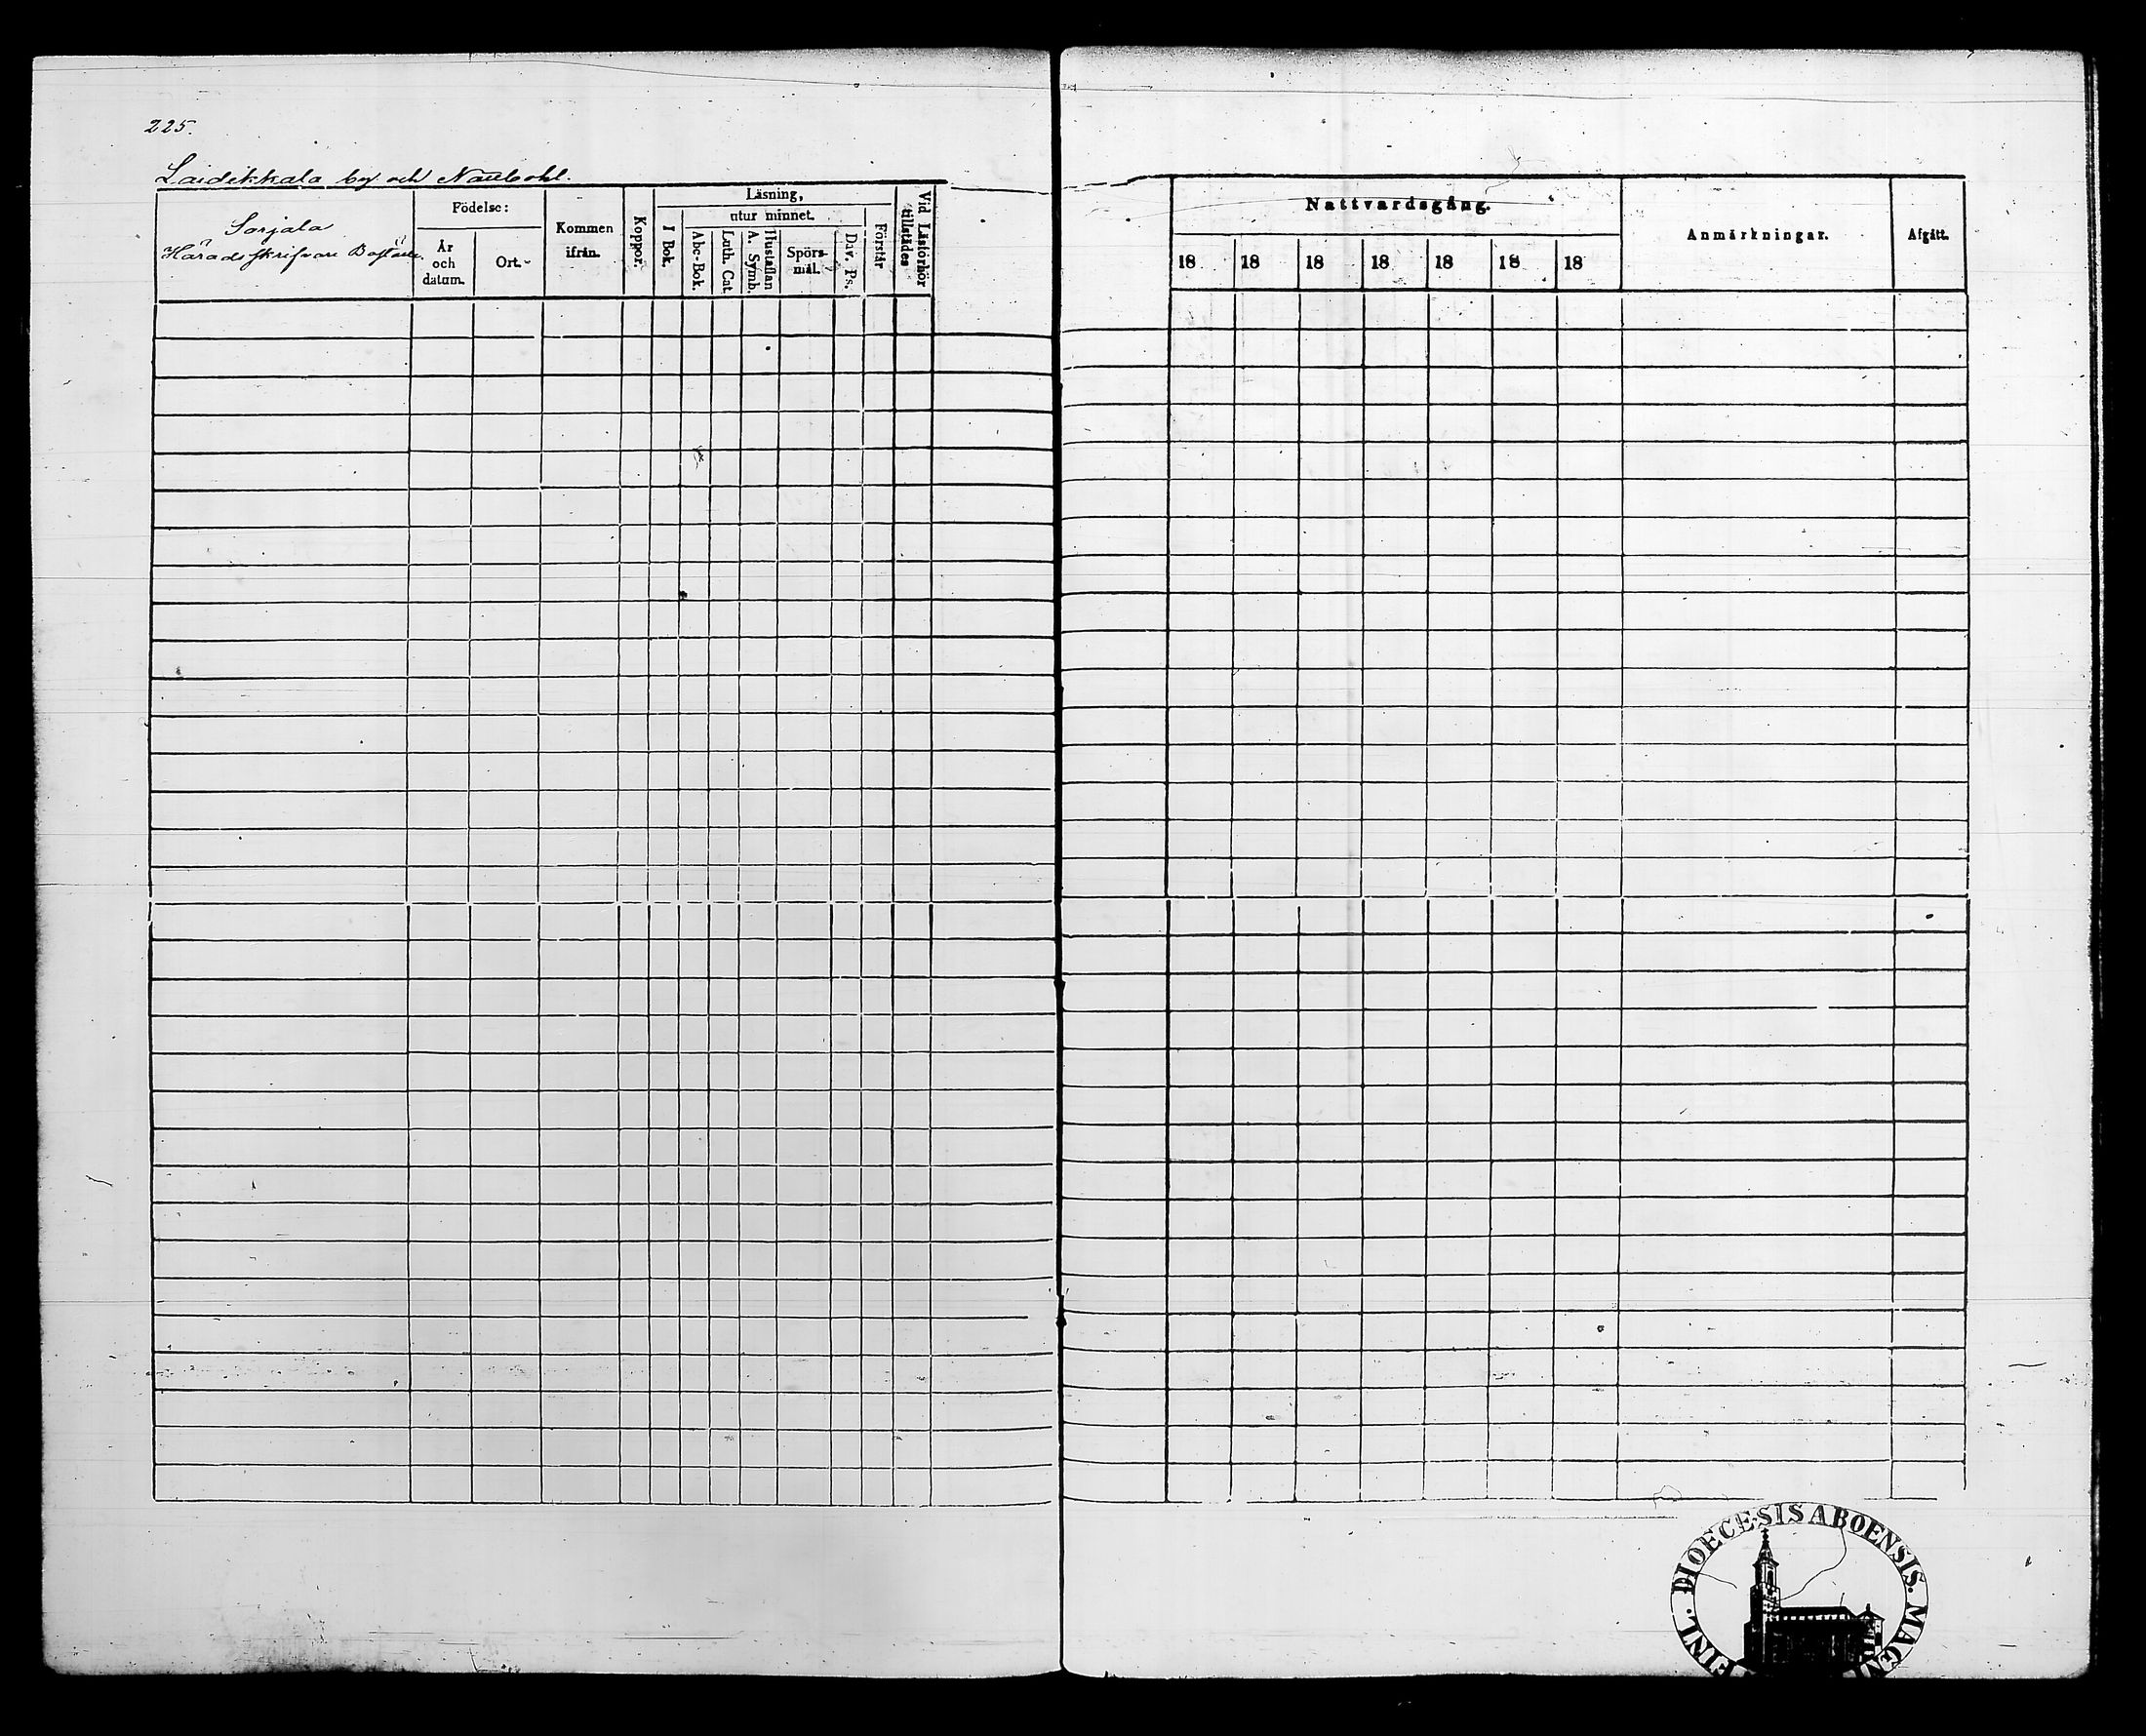 225.
Laidikkala by och Naulsohl.
Sarjala
Häradsskrifvare Boställe.
Födelse:
År och datum.
Ort.
Kommen ifrån.
Koppor.
Läsning,
utur minnet.
I Bok.
Abc-Bok.
Luth. Cat.
Hustaflan A. Symb.
Spörsmål.
Dav. Ps.
Förstår
Vid Läsförhör tillstädes
Nattvardsgång.
18 18 18 18 18 18 18
Anmärkningar.
Afgått.
DIOECESIS ABOENSIS. MAGNI FINL.